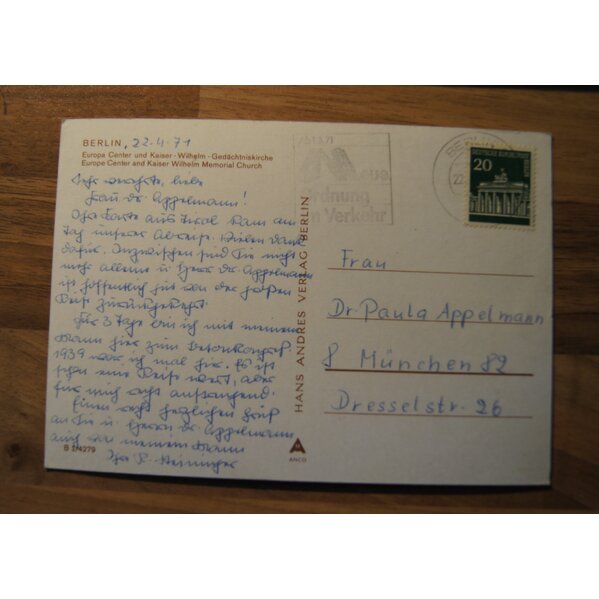 BERLIN, 22.4.71
Europa Center und Kaiser-Wilhelm-Gedächtniskirche
Europe Center and Kaiser Wilhelm Memorial Church
Sehr verehrte, liebe
Frau Dr. Appelmann!
Ihre Karte aus Tirol kam am
Tag unserer Abreise. Vielen Dank
dafür. Inzwischen sind Sie nicht
mehr allein u. Herr Dr. Appelmann
ist hoffentlich gut von der großen
Reise zurückgekehrt.
Für 3 Tage bin ich mit meinem
Mann hier zum Betonkongreß.
1939 war ich mal hier. Es ist
schon eine Reise wert, aber
für mich recht anstrengend.
Einen recht herzlichen Gruß
an Sie u. Herrn Dr. Appelmann
auch von meinem Mann
Ihre
B 2/4279
HANS ANDRES VERLAG, BERLIN
ANCO
neue
Ordnung
im Verkehr
BERLIN
22
DEUTSCHE BUNDESPOST
BERLIN
20
Frau
Dr Paula Appelmann
8 München 82
Dresselstr. 26